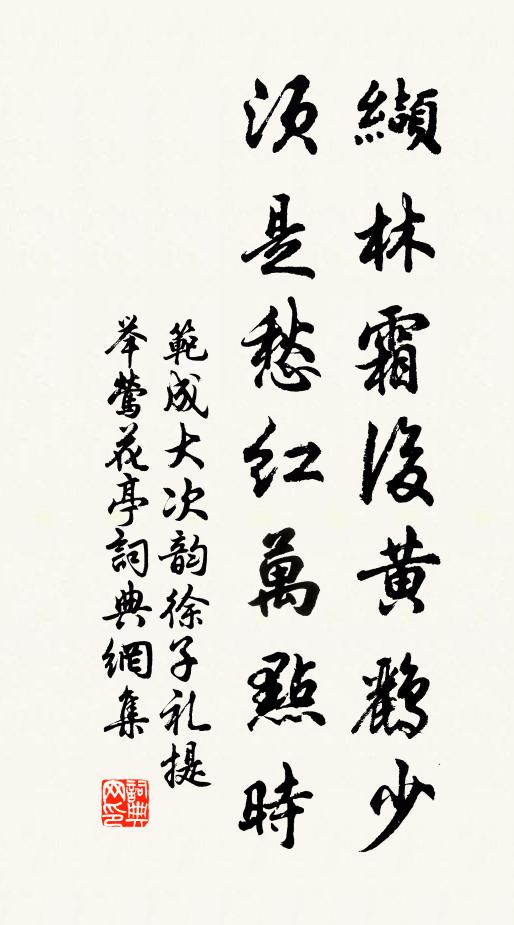 纈林霜後黄鸝少
須是愁紅萬點時
範成大次韵徐子礼提
举鶯花亭詞典網集
詞典
网印